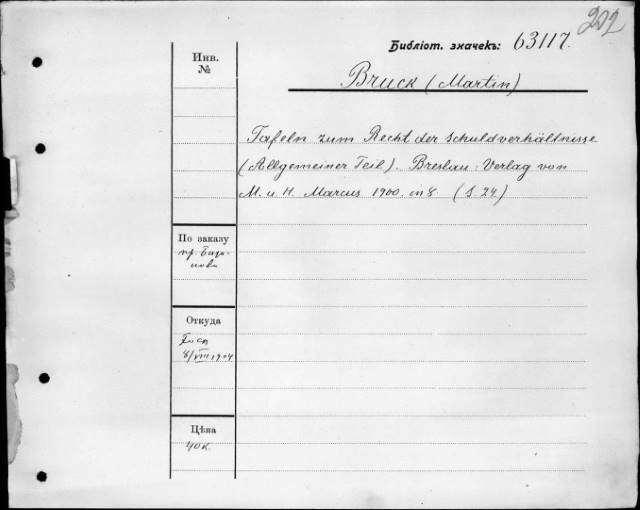 202
Библіот. значекъ: 63117.
Bruck (Martin)
Инв.
№
Tafeln zum Recht der Schuldverhältnisse
(Allgemeiner Teil). Breslau: Verlag von
M. u. H. Marcus 1900. in 8. (S. 24)
По заказу
пр.
Откуда
8/VIII 1904
Цѣна
40к.